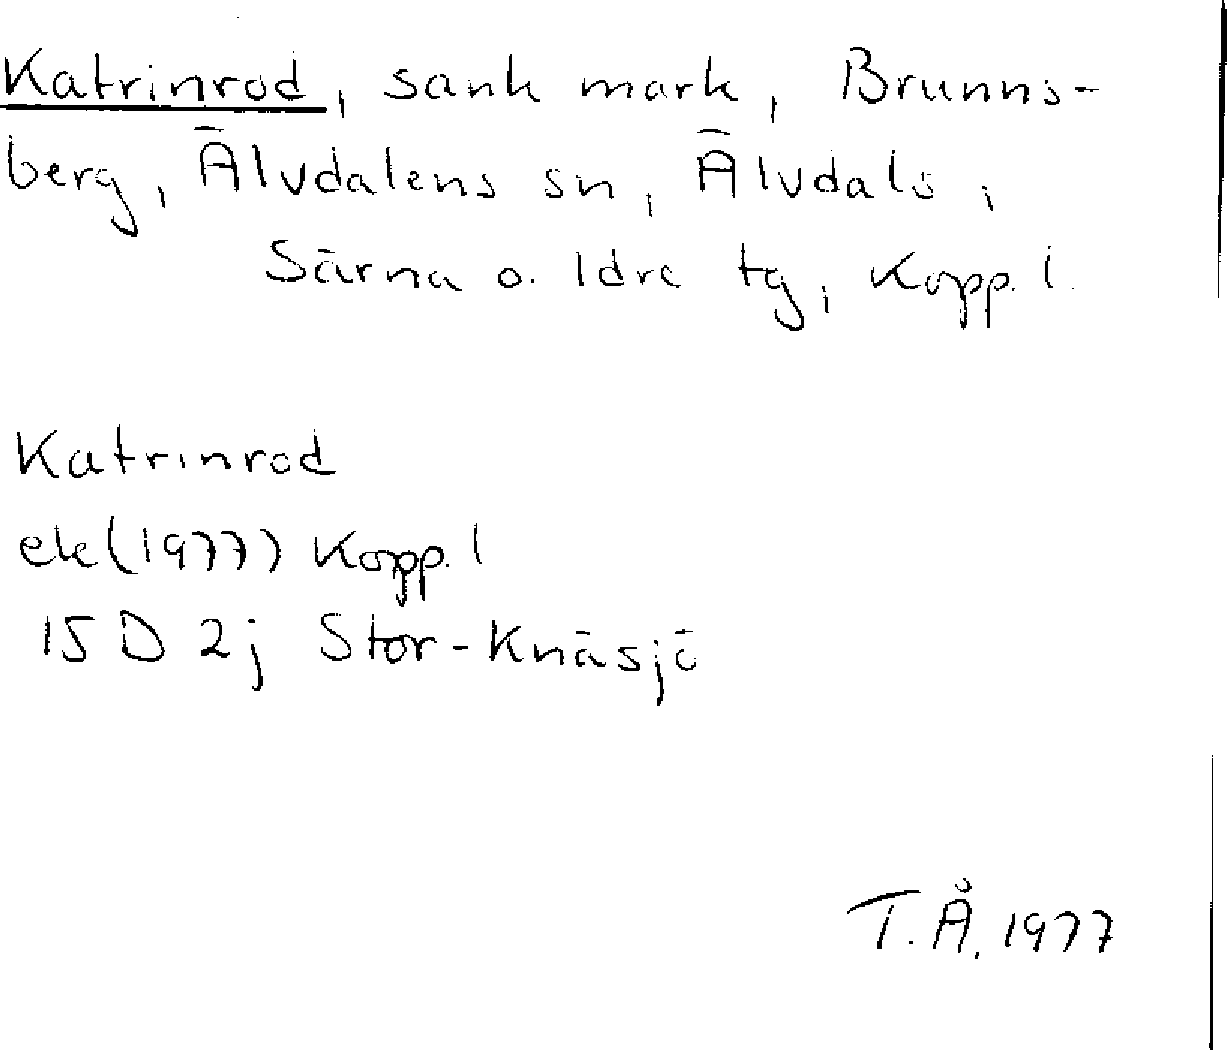 Katrinrod, sank mark, Brunns-
berg, Älvdalens sn, Älvdals,
Särna o. Idre tg, Kopp. l.
Katrinrod
ek (1977) Kopp. l
15 D 2j Stor-Knäsjö
T.Å. 1977